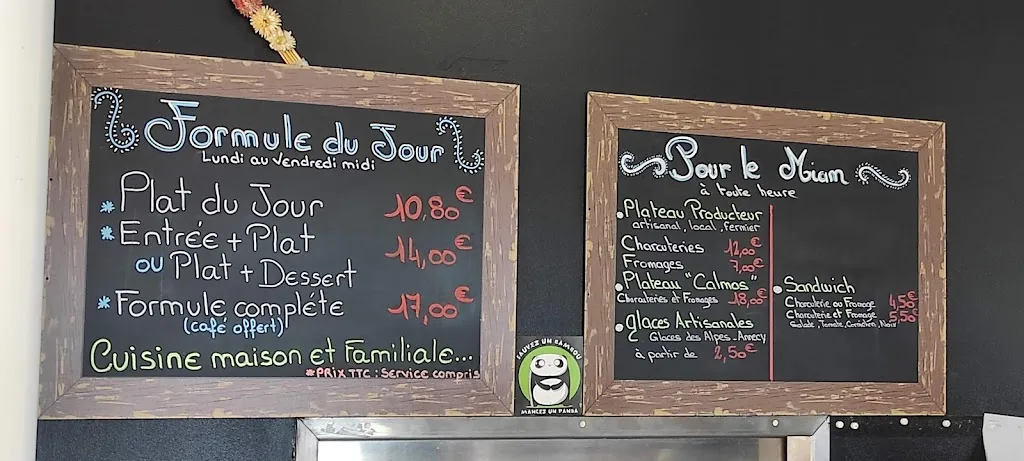 Formule du Jour
Lundi au Vendredi midi
* Plat du Jour 10,80€
* Entrée + Plat 14,00€
ou Plat + Dessert
* Formule complète 17,00€
(café offert)!
Cuisine maison et Familiale...
*PRIX TTC : Service compris
SAUVEZ UN BAMBOU
MANGEZ UN PANDA
Pour le Miam
à toute heure
Plateau Producteur
artisanal, local, fermier
Charcuteries 12,00€
Fromages 7,00€
Plateau "Calmos"
Charcuteries et Fromages 18,00€
Glaces Artisanales
Glaces des Alpes - Annecy
à partir de 2,50€
Sandwich
Charcuterie ou Fromage 4,50€
Charcuterie et Fromage 5,50€
Salade, Tomate, Cornichon,